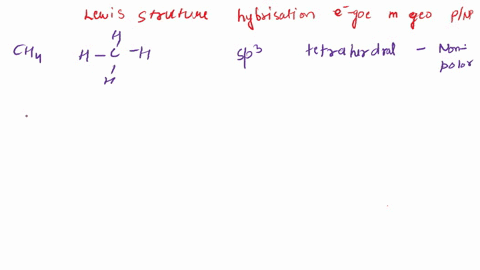 Lewis struture hybrisation e⁻goe m geo P/NP
H
CH4 H – C – H sp³ tetraherdral – Non polar
H